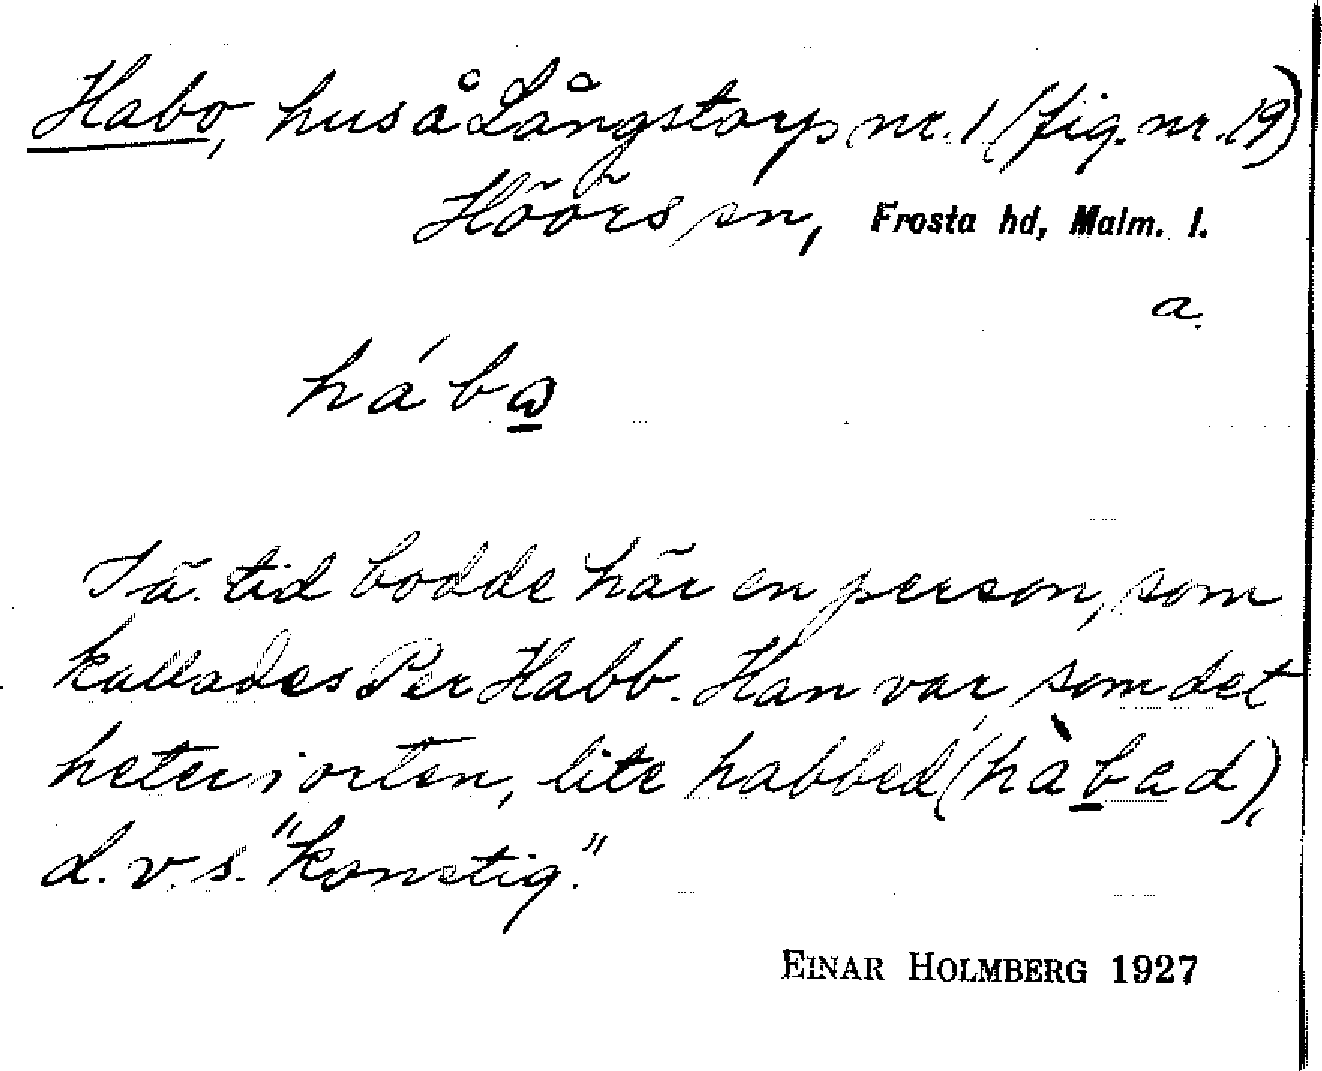 Habo, hus å Långstorp nr. 1 (fig. nr. 19)
Höörs sn, Frosta hd, Malm. l.
a.
Iä. tid bodde här en person, som
kallades Per Habb. Han var, som det
heter i orten, lite habbed (hàbad),
d.v.s. "konstig."
EINAR HOLMBERG 1927